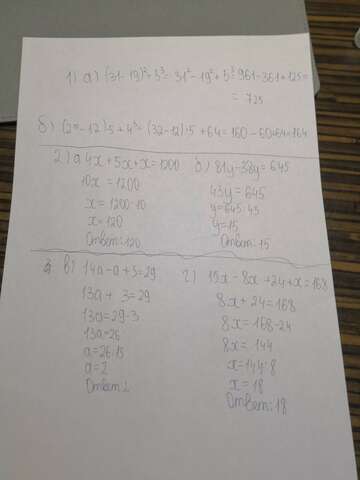 1) а) (31-19)²+5³=31²-19²+5³=961-361+125=
= 725
б) (2⁵-12)·5+4³=(32-12)·5+64=160-60+64=164
2) а 4x+5x+x=1200
10x = 1200
x = 1200:10
x=120
Ответ:120
б) 81y-38y=645
43y=645
y=645:43
y=15
Ответ: 15
3. в) 14a-a+3=29
13a+ 3=29
13a=29-3
13a=26
a=26:13
a=2
Ответ 2
г) 15x-8x+24+x=168
8x+24=168
8x=168-24
8x= 144
x=144:8
x=18
Ответ:18